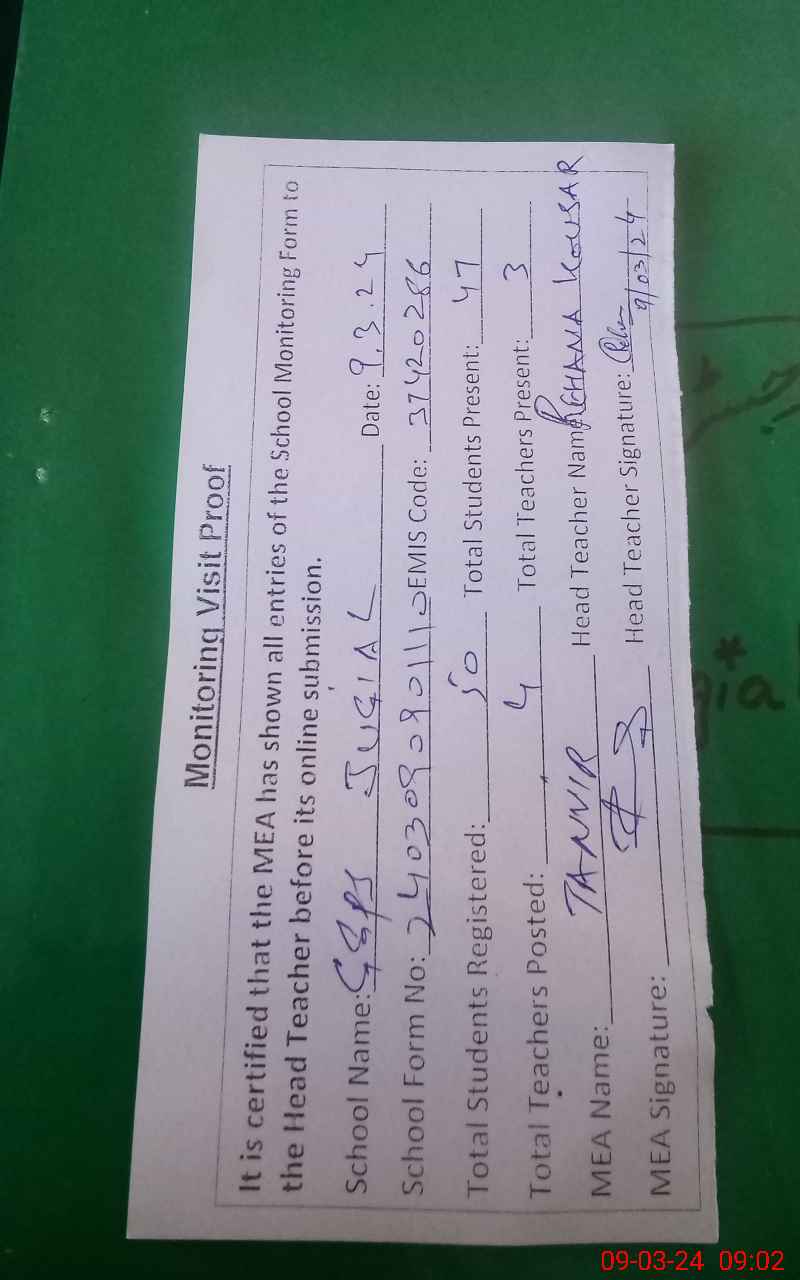 Monitoring Visit Proof
It is certified that the MEA has shown all entries of the School Monitoring Form to
the Head Teacher before its online submission.
School Name: GGPS JUGIAL Date: 9.3.24
School Form No: 2403090901110 EMIS Code: 37420286
Total Students Registered: 50 Total Students Present: 47
Total Teachers Posted: 4 Total Teachers Present: 3
MEA Name: TANVIR Head Teacher Name REHANA KOUSAR
MEA Signature: Head Teacher Signature:
9/03/24
gia
09-03-24 09:02